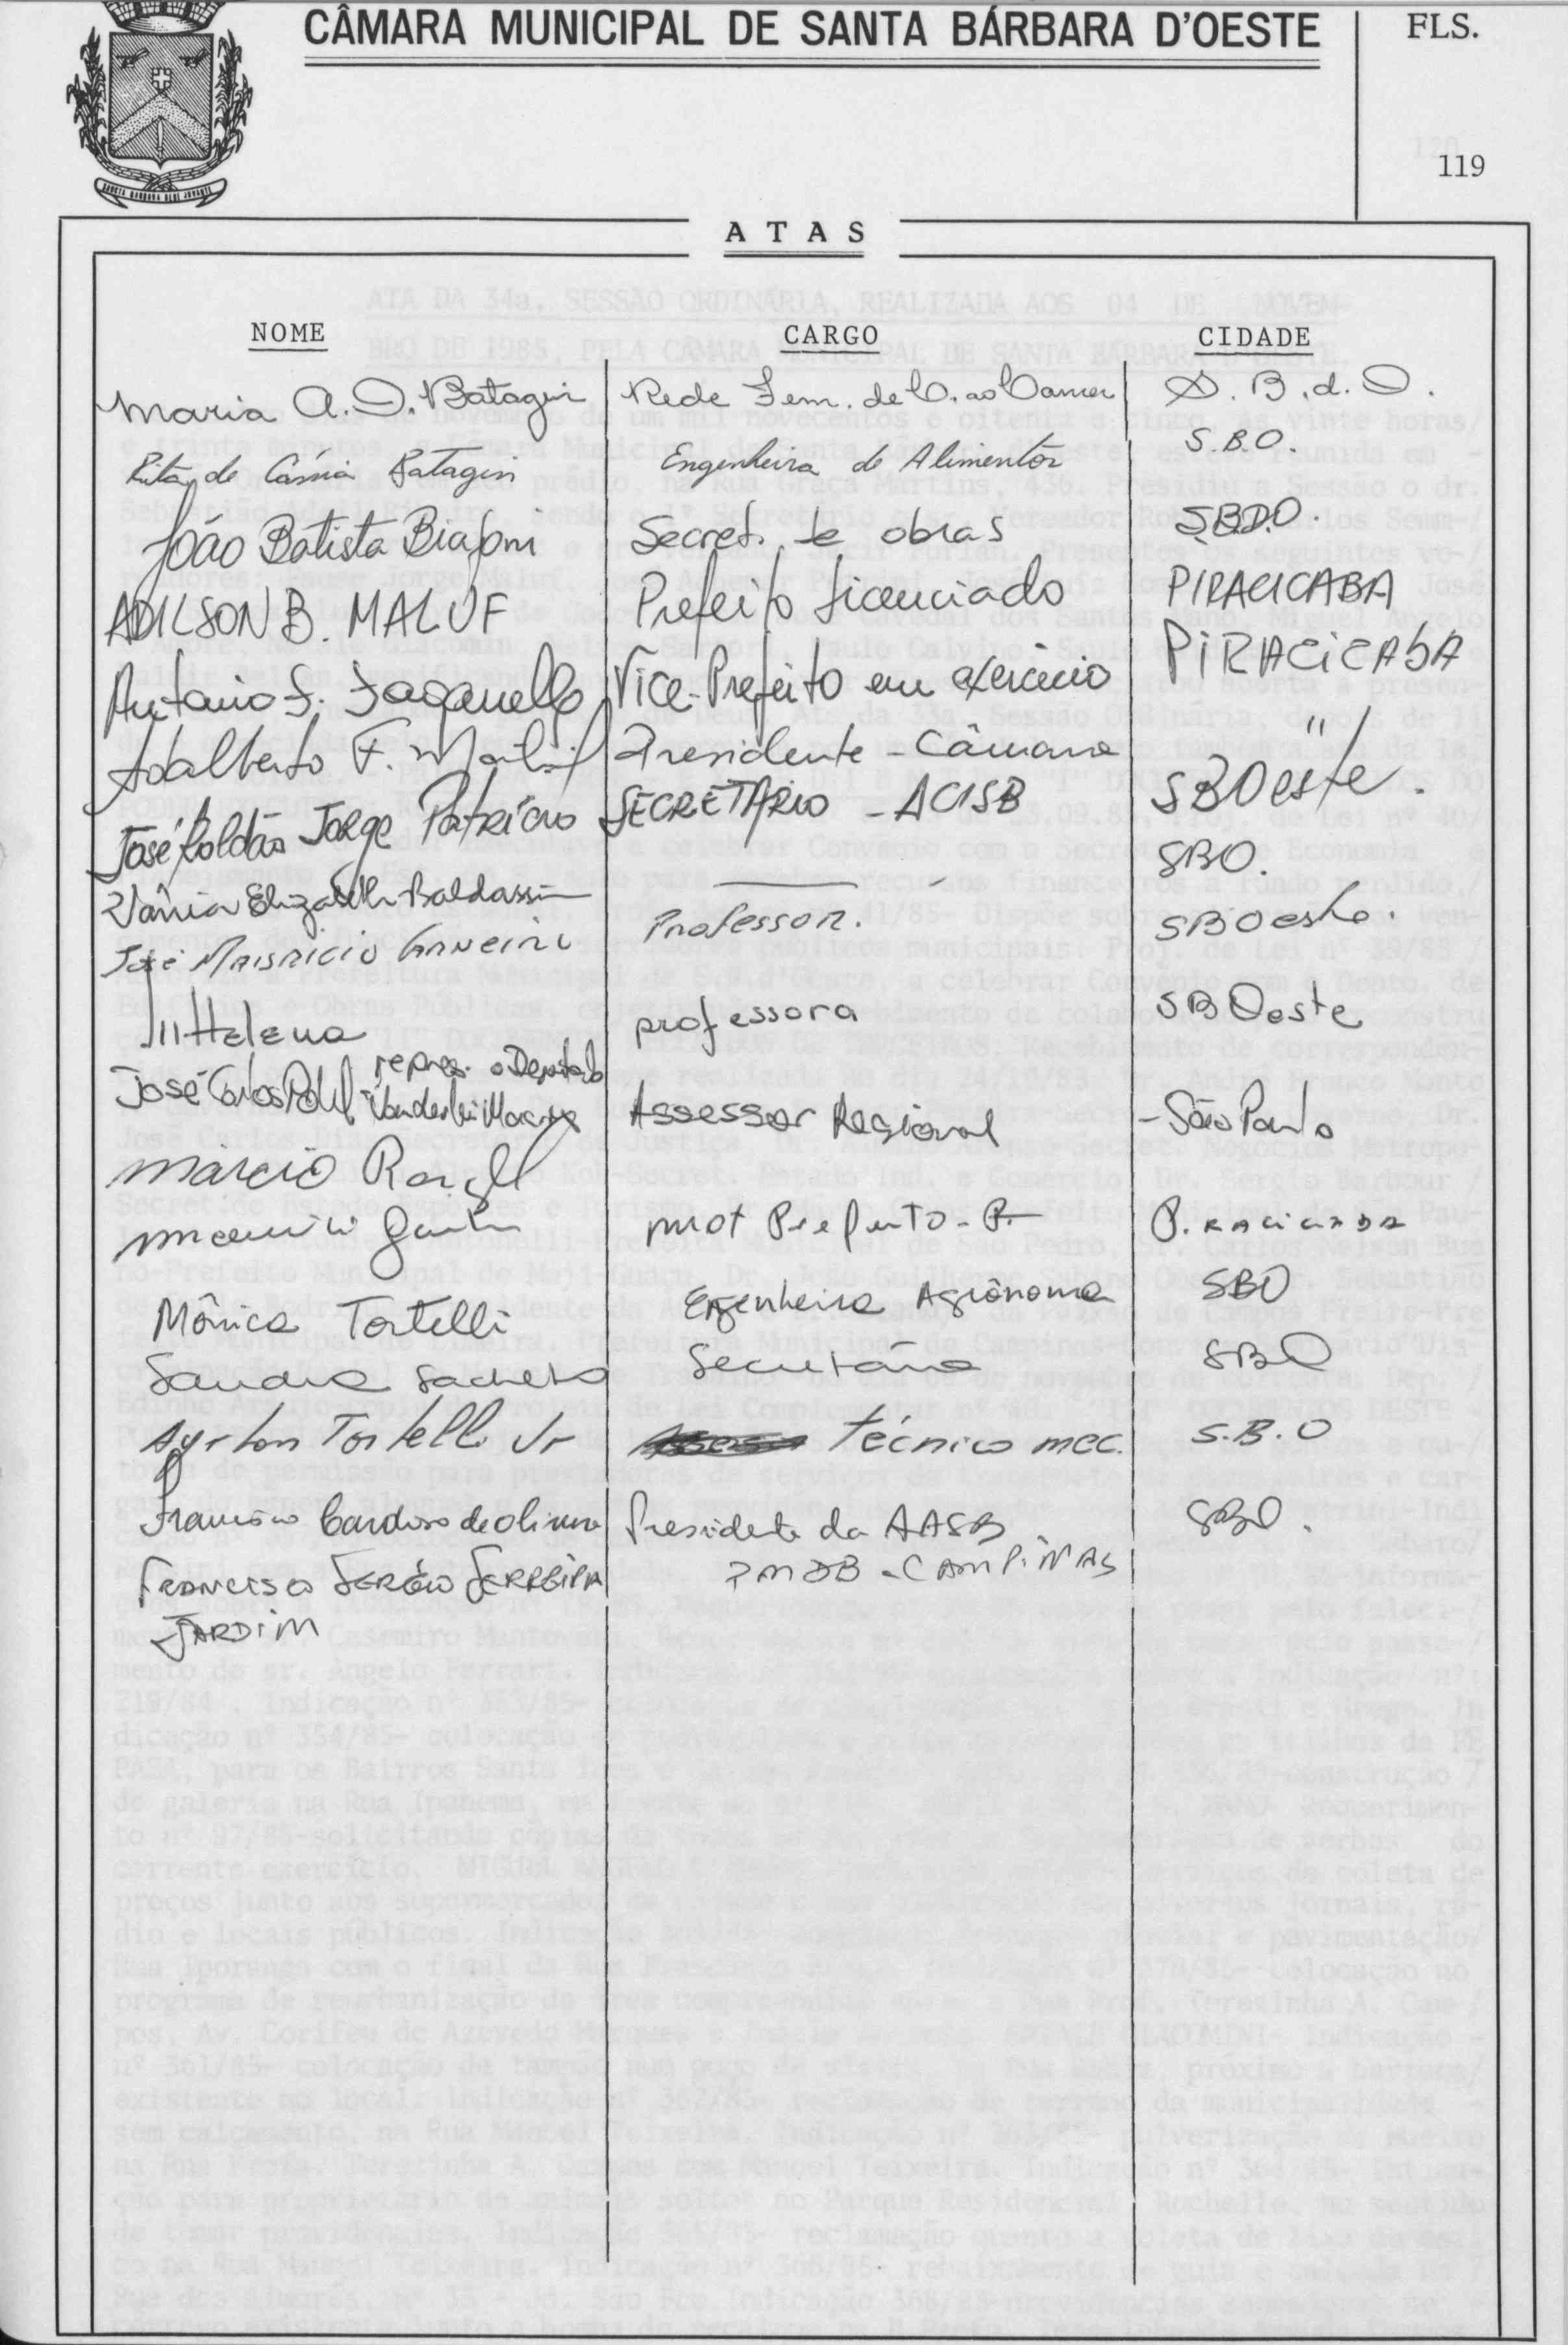 CÂMARA MUNICIPAL DE SANTA BÁRBARA D'OESTE
FLS.
119
ATAS
NOME CARGO CIDADE
Maria A. D. Batagin Rede Fem. de C. ao Cancer S. B. d. O.
Rita de Cássia Batagin Engenheira de Alimentos S.B.O.
João Batista Secret. de obras S.B.D.O.
ADILSON B. MALUF Prefeito Licenciado PIRACICABA
Antonio F. Faganello Vice-Prefeito em exercicio PIRACICABA
Adalberto F. Presidente - Câmara "
José Roldão Jorge Patrício SECRETÁRIO - ACISB SBOeste.
Vânia Elizabeth Baldassin SBO.
José Mauricio Carneiro Professor. SBOeste.
Helena professora SBOeste
José Carlos repres. o Deputado
Vanderlei Macris Assessor Regional - São Paulo
Márcio
mot Prefeito - P. Piracicaba
Mônica Tortelli Engenheira Agrônoma SBO
Sandra Sacheto Secretária SBO
Ayrton Tortelli Jr Técnico mec. S.B.O
Francisco Cardoso de Oliveira Presidente da AASB SBO.
FRANCISCO SERGIO FERREIRA PMDB - CAMPINAS
JARDIM